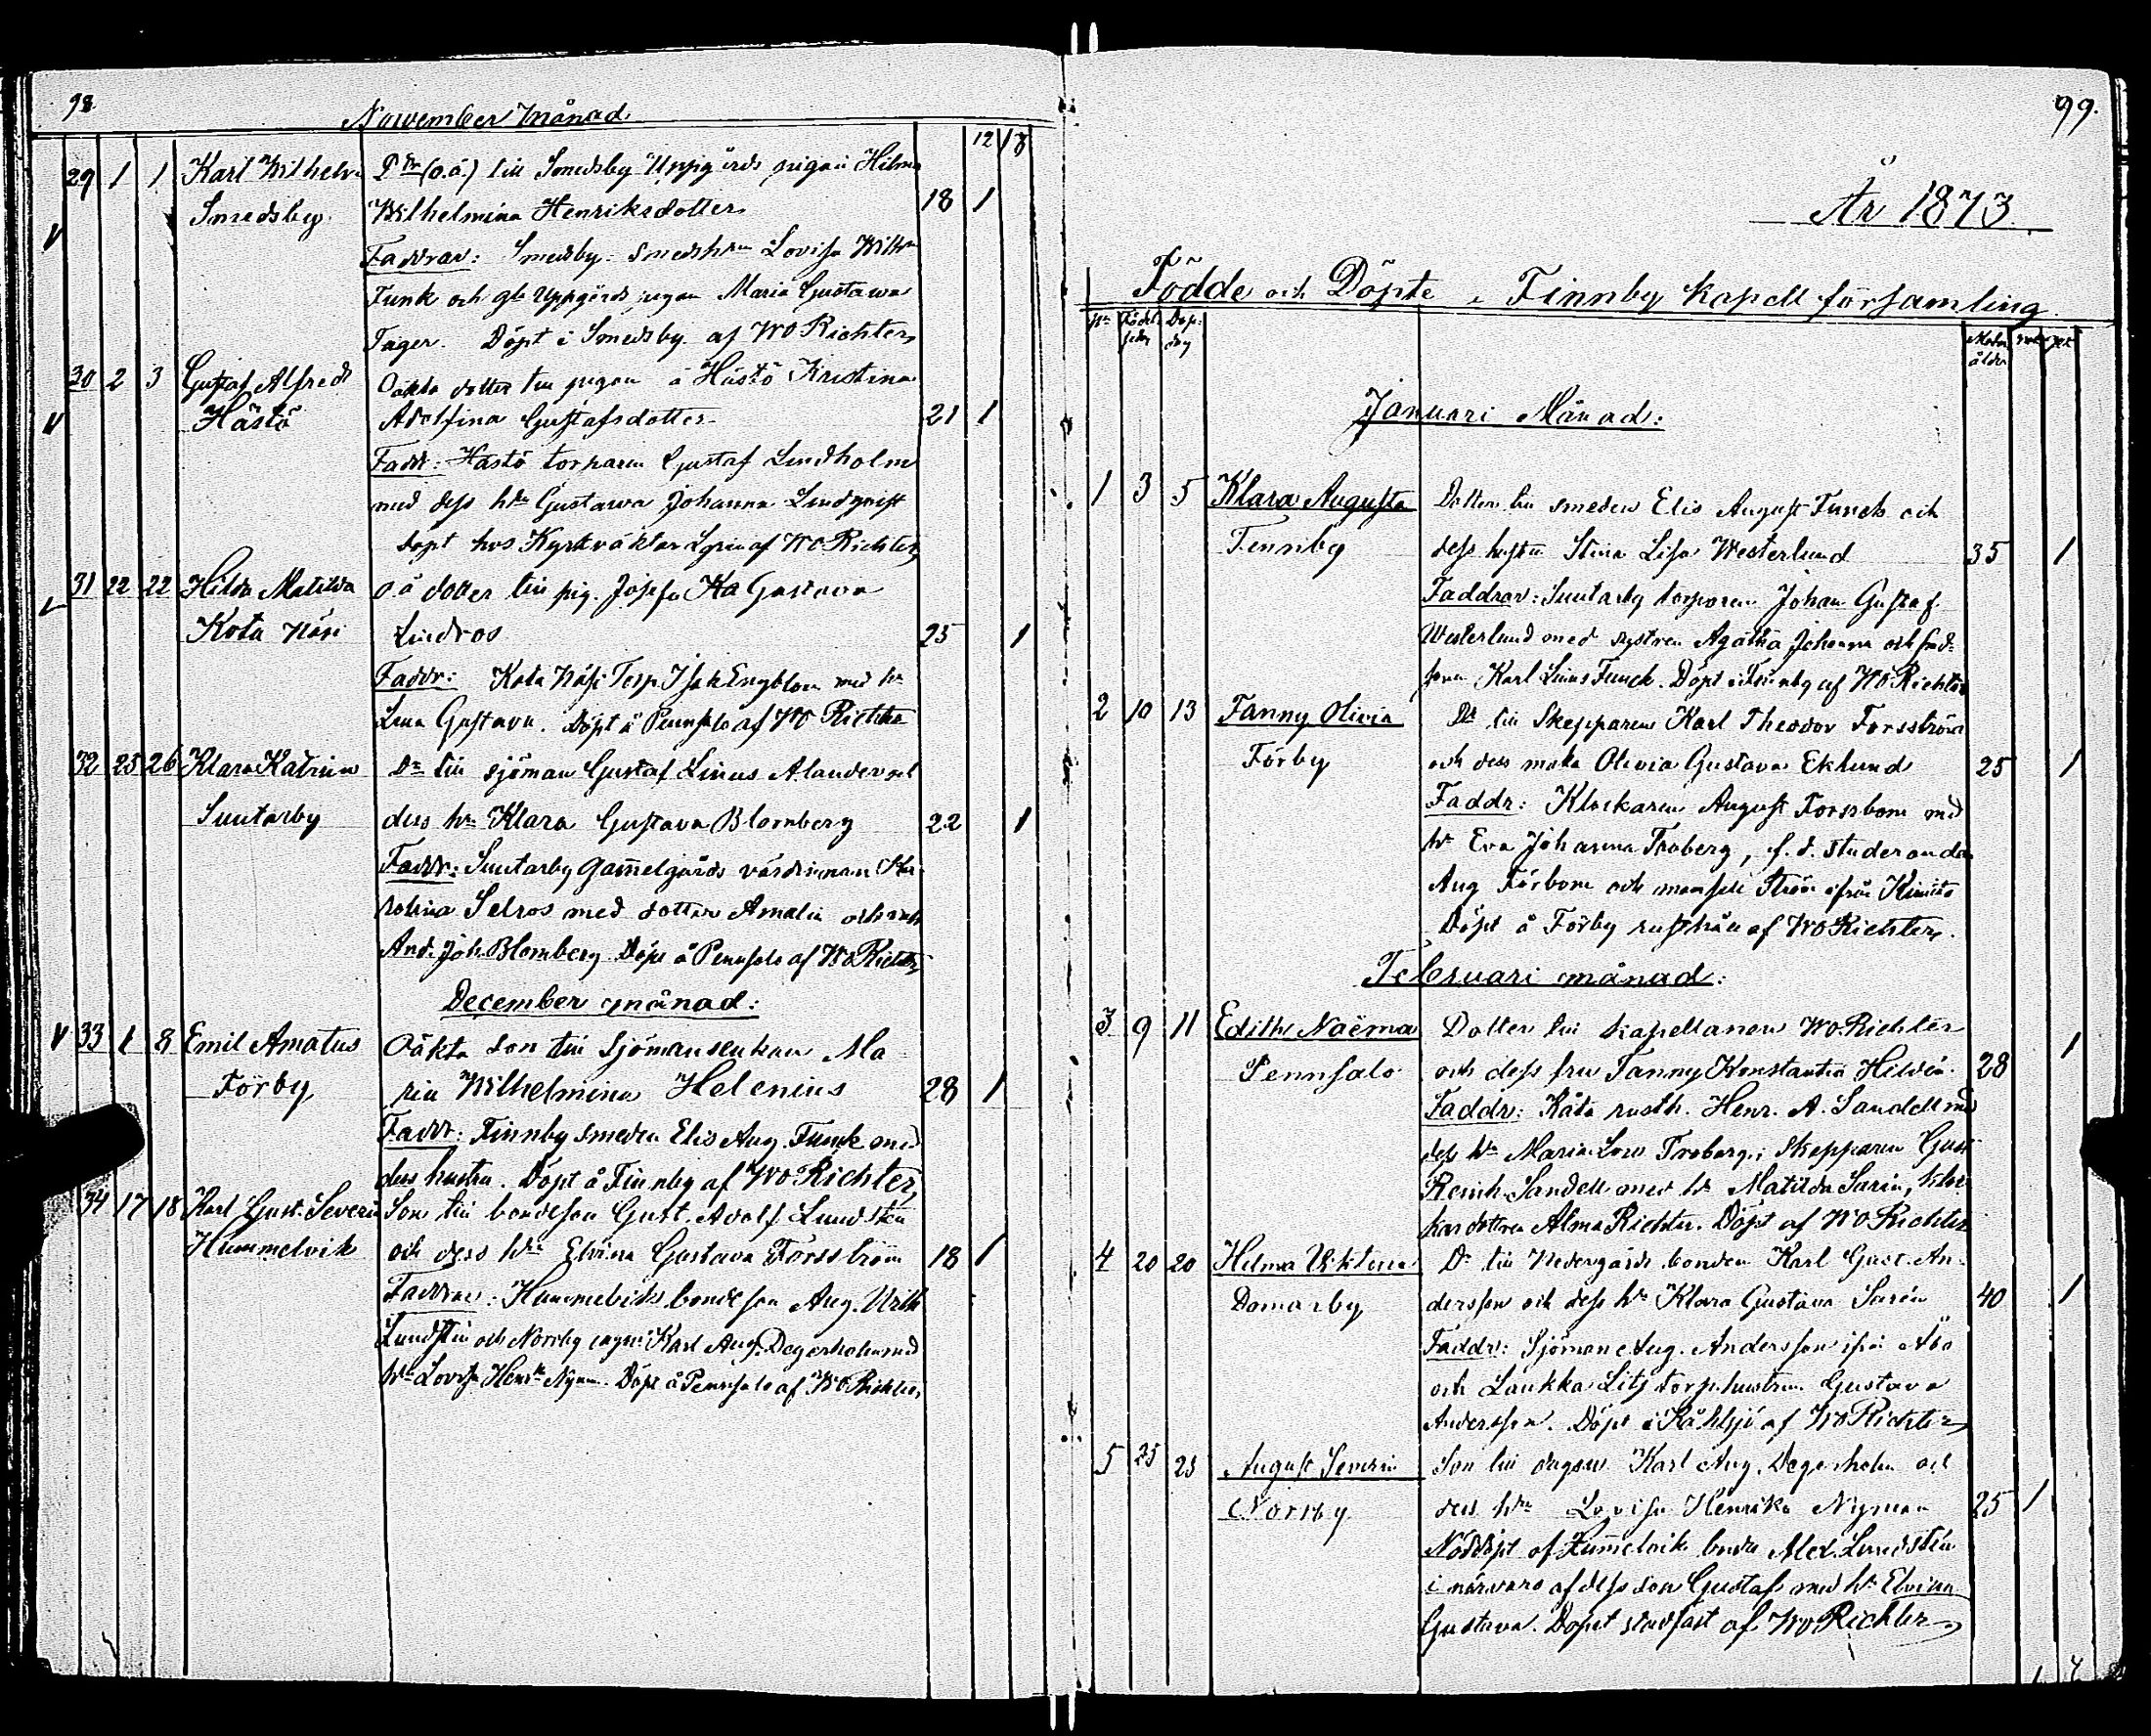 98.
November månad.
12 18
29 1 1 Karl Wilhelm (o.ä.) till Smedsby Uppgårds pigan Hilma
Smedsby. Wilhelmina Henriksdotter 18 1
Faddrar: Smedsby smedshn Lovisa Wilhna
Funk och gle Uppgårds pigan Maria Gustawa
Fager. Döpt i Smedsby af WO Richter
30 2 3 Gustaf Alfred Oäkta dotter till pigan å Hästö Kristina
Hästö Adolfina Gustafsdotter 21 1
Fadd: Hästö torparen Gustaf Lindholm
med dess hu Gustawa Johanna Lindqvist
döpt hos Kyrkväktar af WO Richter
31 22 22 Hilda Matilda o.ä dotter till pig. Josefa Gustava
Kota Näsi Lindros 25 1
Faddr: Kota Näsi Torp Isak Engblom med hu
Lena Gustava. Döpt å Pennsalo af WO Richter
32 25 26 Klara Katrina Dr till sjöman Gustaf Linus Alander och
Suutarby dess hu Klara Gustava Blomberg 22 1
Faddr: Suutarby Gammelgårds värdinnan Ka
rolina Selros med dotter Amalia och
And. Joh. Blomberg Döpt å Pennsalo af WO Richter
December månad:
33 1 8 Emil Amatus Oäkta son till Sjömansenkan Ma
Förby ria Wilhelmina Helenius 28 1
Faddr: Finnby smeden Elis Aug. Funck med
dess hustru. Döpt å Finnby af WO Richter
34 17 18 Karl Gust. Severin Son till bondeson Gust. Adolf Lundsten
Hummelvik och dess hu Elvina Gustava Forsström 18 1
Faddrar: Hummelviks bondeson Aug. Ulrik
Lundstén och Norrby Karl Aug. Degerholm med
hu Lovisa Hen Nyman. Döpt å Pennsalo af WO Richter
99.
År 1873.
Födde och Döpte i Finnby kapell församling.
No Födel sedag Dop: dag Moder ålder
Januari Månad:
1 3 5 Klara Augusta Dotter till smeden Elis August Funck och
Finnby dess hustru Stina Lisa Westerlund 35 1
Faddrar: Suutarby torparen Johan Gustaf
Westerlund med systren Agatha Johanna och
sonen Karl Linus Funck. Döpt i Finnby af WO Richter
2 10 13 Fanny Olivia Dr till Skepparen Karl Theodor Forsström
Förby och dess maka Olivia Gustava Eklund 25 1
Faddr: Klockaren August Forsbom med
hu Eva Johanna Froberg, f.d. studeranden
Aug Förbom och mamsell Ström ifrån Kimito
Döpt å Förby rusthåll af WO Richter.
Februari månad:
3 9 11 Edith Naëma Dotter till kapellanen WO Richter
Pennsalo och dess fru Fanny Konstantia Hildén. 28 1
Faddr: Kåtö rusth. Henr. A. Sandell med
dess hu Maria Lovis Froberg; Skepparen Gust
Reinh. Sandell med hu Matilda Sarin,
kardottren Alma Richter. Döpt af WO Richter
4 20 20 Hilma Viktoria Dr till Nedergårds bonden Karl Gust. An-
Damarby dersson och dess hu Klara Gustava Sarén 40 1
Faddr: Sjöman Aug. Andersson ifrån Åbo
och Laukka Litz torp.hustrun Gustava
Andersson. Döpt i af WO Richter
5 25 25 August Severin Son till dagsw. Karl Aug. Degerholm och
Norrby dess hu Lovisa Henrika Nyman 25 1
Nöddöpt af Hummelvik bonde Alex. Lundstén
i närvaro af dess son Gustaf med hu Elvina
Gustava. Dopet stadfäst af WO Richter